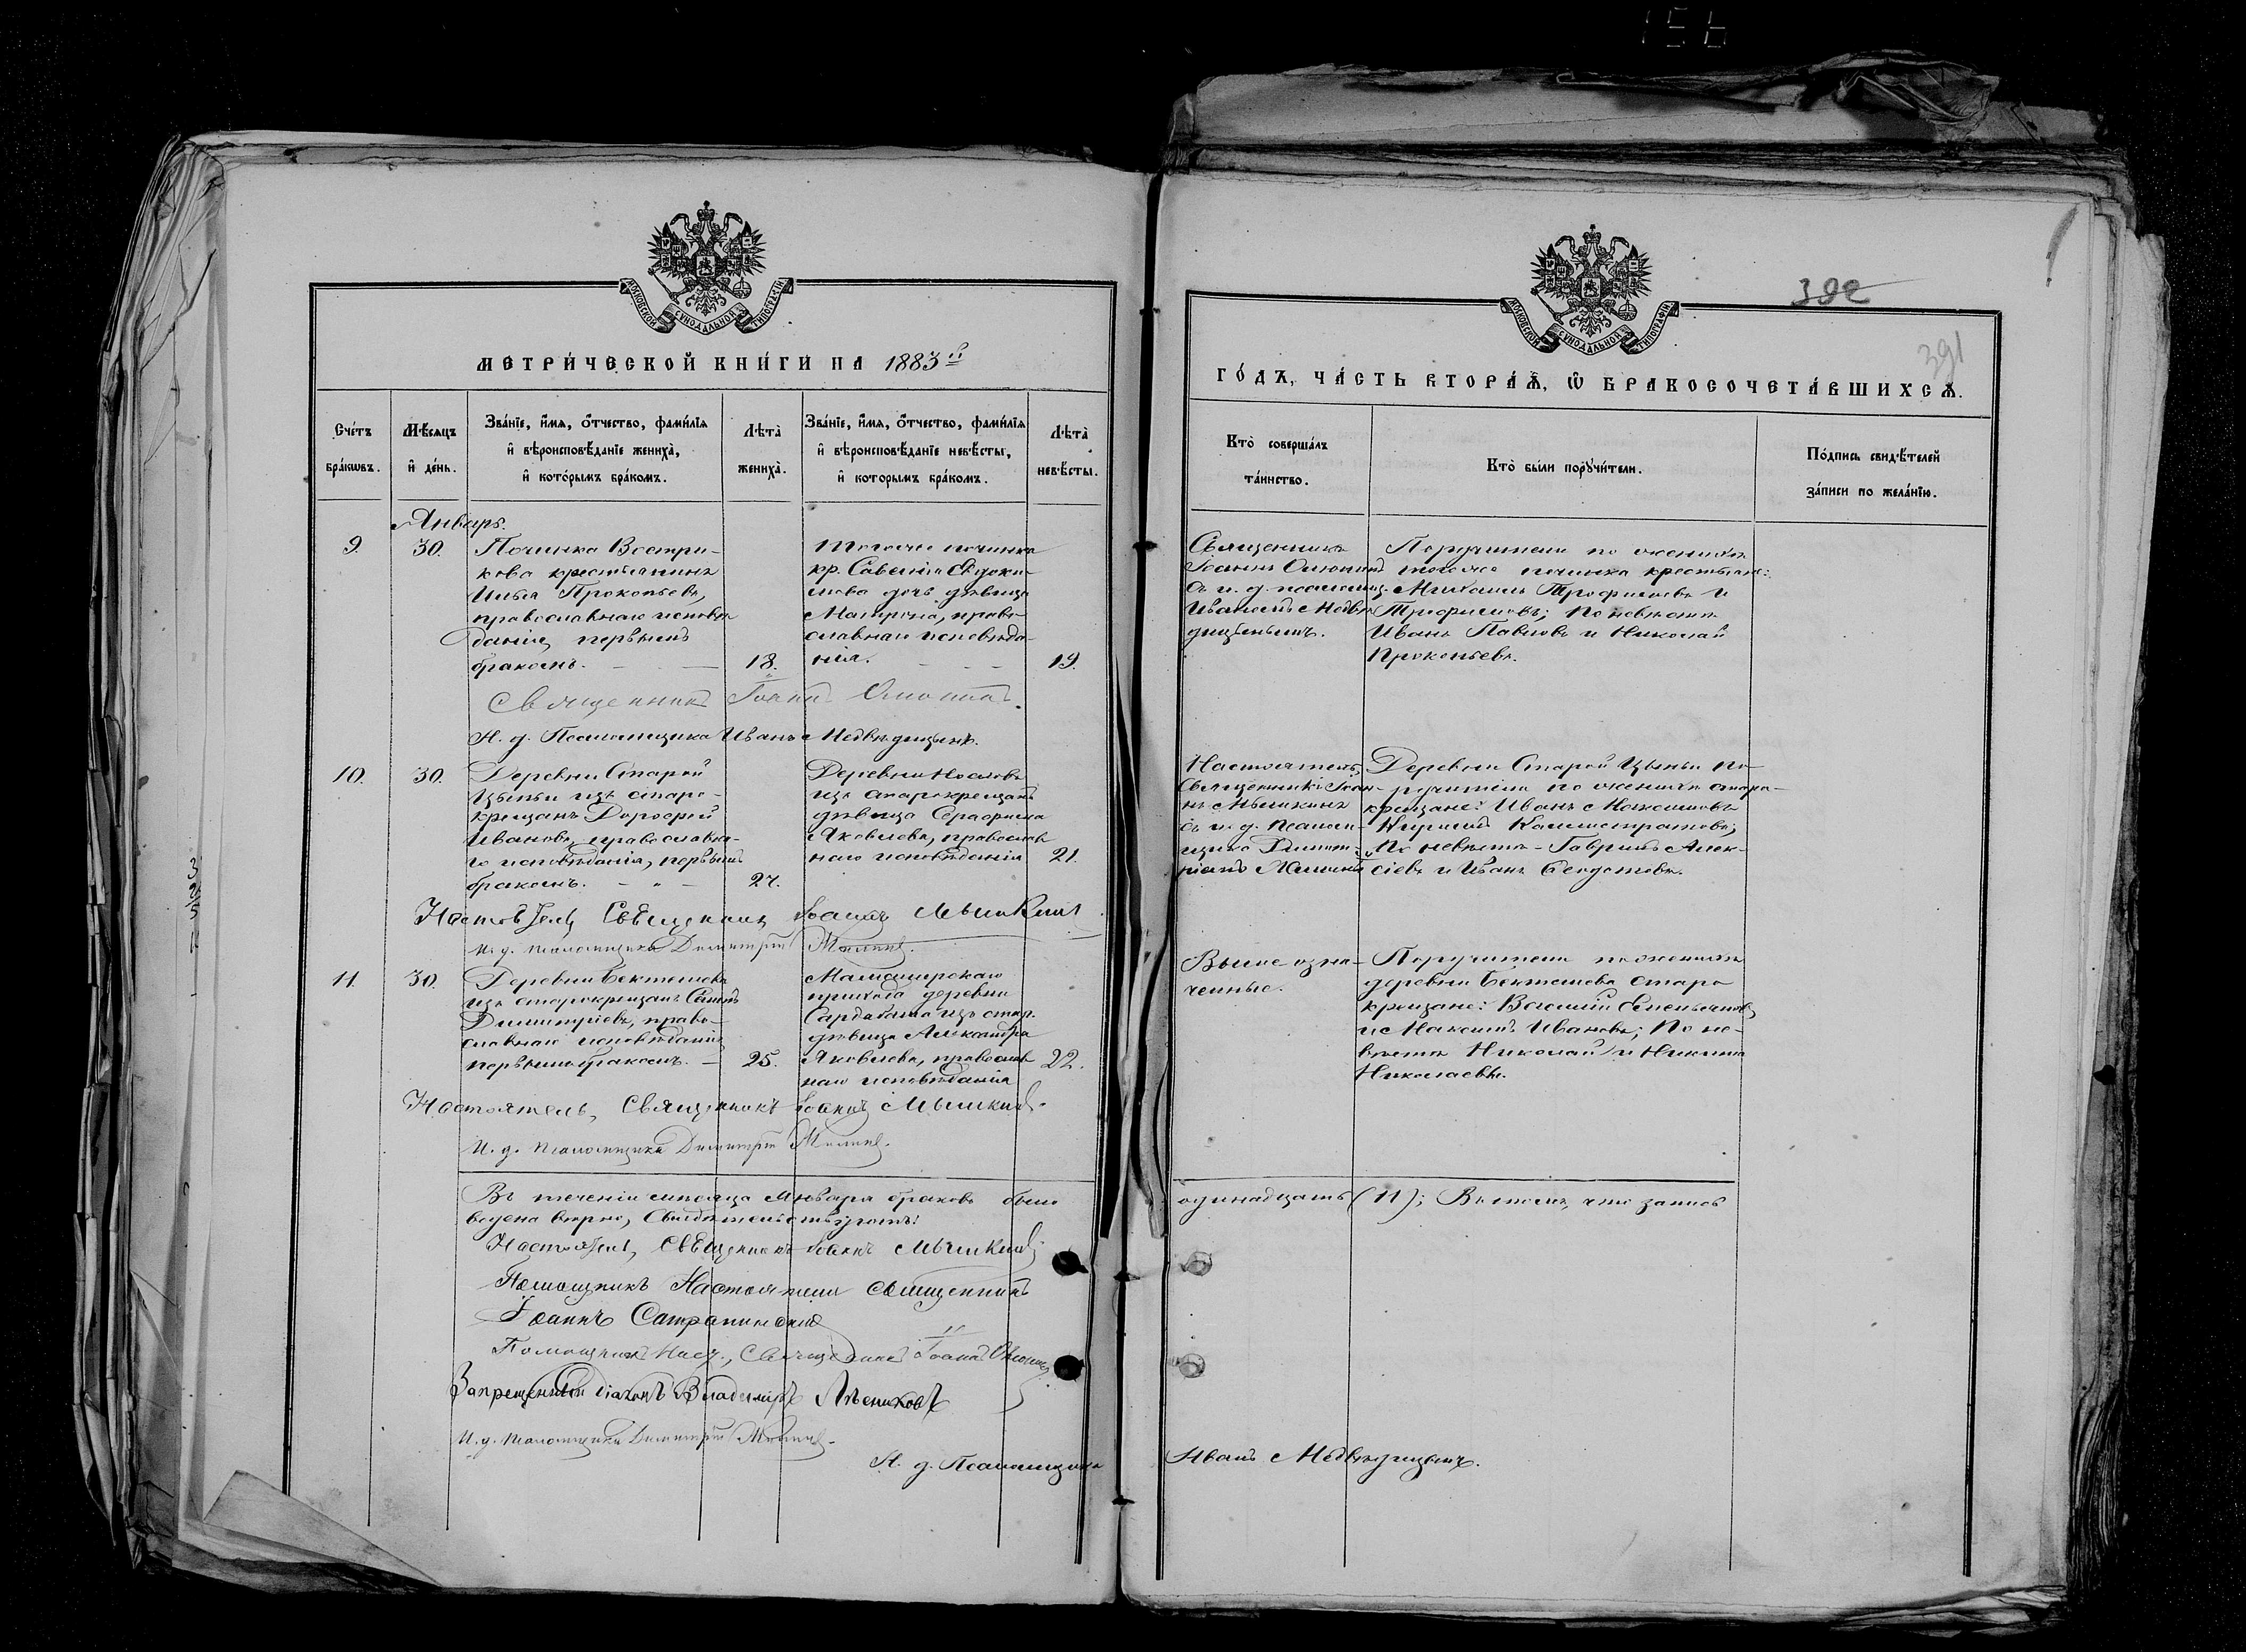 МОСКОВСКОЙ СѴНОДАЛЬНОЙ ТИПОГРАФІИ
МЕТРИ́ЧЕСКОЙ КНИ́ГИ НА 1883 й
Сче́тъ бра́кѡвъ.
Мѣ́сяцъ и҆ де́нь.
Зва́нїе, и҆́мя, ѻ҆́тчество, фами́лїя
и҆ вѣроисповѣ́данїе жениха̀,
и҆ кото́рымъ бра́комъ.
Лѣта̀ жениха̀.
Зва́нїе, и҆́мя, ѻ҆́тчество, фами́лїя
и҆ вѣроисповѣ́данїе невѣ́сты,
и҆ которымъ бра́комъ.
Лѣта̀ невѣ́сты.
Январь.
9.
30.
Починка Востри-
кова крестьянинъ
Илья Прокопьевъ,
православнаго исповѣ-
данія, первымъ
бракомъ.
18.
Того же починка
кр. Савелія Евдоки-
мова дочь дѣвица
Матрона, право-
славнаго исповѣда-
нія.
19.
Священникъ Іоаннъ
И. д. Псаломщика Иванъ Медвѣдицынъ.
10.
30.
Деревни Старой
Цыпьи изъ старо-
крещенъ Дорофей
Ивановъ, православна-
го исповѣданія, первымъ
бракомъ.
27.
Деревни
изъ старокрещенъ
дѣвица Серафима
Яковлева, православ-
наго исповѣданія
21.
Настоятель, Священникъ Іоаннъ Мышкинъ
И. д. псаломщика Димитрій
11.
30.
Деревни
изъ старокрещенъ
Димитріевъ, право-
славнаго исповѣданія
первымъ бракомъ.
25.
Мамаширскаго
прихода деревни
Сардабаша изъ стар.
дѣвица Александра
Яковлева, православ-
наго исповѣданія
22.
Настоятель, Священникъ Іоаннъ Мышкинъ.
И. д. псаломщика Димитрій
Въ теченіи мѣсяца Января браковъ было
ведена вѣрно, Свидѣтельствуютъ:
Настоятель, Священникъ Іоаннъ Мышкинъ
Помощникъ Настоятеля священникъ
Іоаннъ
Помощникъ Наст., Священникъ Іоаннъ
Запрещенный діаконъ Владиміръ
И. д. псаломщика Димитрій
И. д. Псаломщика
392
391
МОСКОВСКОЙ СѴНОДАЛЬНОЙ ТИПОГРАФІИ
ГО́ДЪ, ЧА́СТЬ ВТОРА́Ѧ, Ѡ҆ БРАКОСОЧЕТА́ВШИХСѦ.
Кто̀ соверша́лъ
та́инство.
Кто̀ бы́ли порꙋчи́тели.
По́дпись свидѣ́телей
за́писи по жела́нїю.
Священникъ
Іоаннъ
съ и. д. псаломщ.
Иваномъ Медвѣ-
дицынымъ.
Поручители по женихѣ
того же починка крестьяне:
Михаилъ Трофимовъ и
Трифиловъ; По невѣстѣ
Иванъ Павловъ и Николай
Прокопьевъ.
Настоятель,
Священникъ Іоан-
нъ Мышкинъ
съ и. д. псалом-
щика Димит-
ріемъ
Деревни Старой Цыпьи по-
ручители по женихѣ старо-
крещене: Иванъ Максимовъ
Кирилъ Калистратовъ;
По невѣстѣ - Гаврилъ Алек-
сіевъ и Иванъ Ѳедотовъ.
Выше озна-
ченные.
Поручители по женихѣ
деревни старо
крещене: Василій Емельяновъ
и Максимъ Ивановъ; По не-
вѣстѣ Николай и Никита
Николаевы.
одинадцать (11); Въ томъ, что запись
Иванъ Медвѣдицынъ.